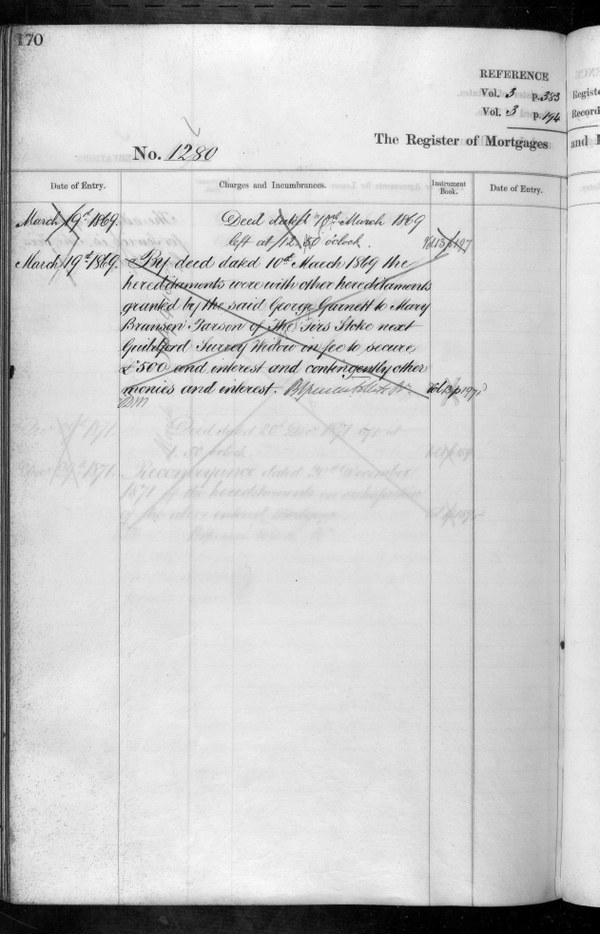 170
REFERENCE
Vol. 3 p. 383
Vol. 3 p. 194
The Register of Mortgages
No. 1280
Date of Entry.
Charges and Incumbrances.
Instrument Book.
Date of Entry.
March 19th 1869.
Deed dated 10th March 1869
left at 12.30 oclock.
March 19th 1869.
By deed dated 10th March 1869 the
hereditaments were with other hereditaments
granted by the said George Garnett to Mary
Branson Parson of The Firs Stoke next
Guildford Surrey Widow in fee to secure
£500 and interest and contingently other
monies and interest.
Registe
Record
and
1871.
Deed dated 20th Decr 1871
oclock
1871.
Reconveyance dated 20th December
1871 of the hereditaments in
of the above entered